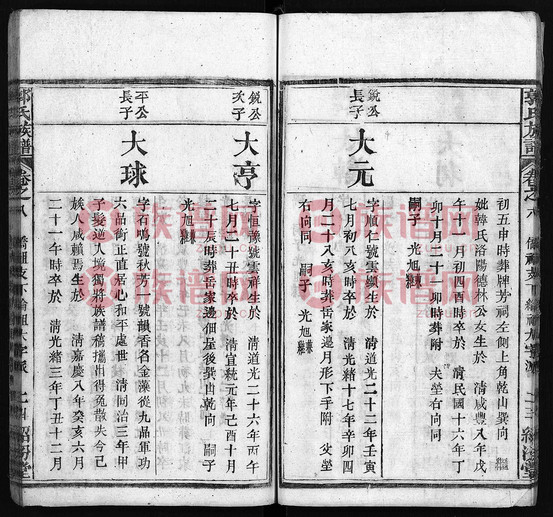 郭氏族譜
卷之八
初五申時葬牌芳祠左側上角乾山巽向
妣韓氏洛陽德林公女生於 清咸豐八年戊
午十一月初四酉時卒於 清民國十六年丁
卯十月二十一卯時葬附 夫塋右向同
嗣子 光旭
銳公
長子
大元
字順仁號 生於 清道光二十二年壬寅
七月初八亥時卒於 清光緒十七年辛卯四
月二十八亥時葬岳家邊月形下手附 父塋
右向同 嗣子 光旭
銳公
次子
大亨
字恒豫號雲祥生於 清道光二十六年丙午
七月二十五丑時卒於 清宣統元年己酉十月
二十辰時葬岳家邊佃屋後巽山乾向 嗣子
光旭
平公
長子
大球
字石鳴號秋芳 號韻香名金藻從九品軍功
六品銜正直居心和平處世 清同治三年甲
子髮逆入境獨將族譜稿攜出得免散失今已
族人咸賴焉生於 清嘉慶八年癸亥六月
二十一午時卒於 清光緒三年丁丑十二月
郭氏族譜
卷之八